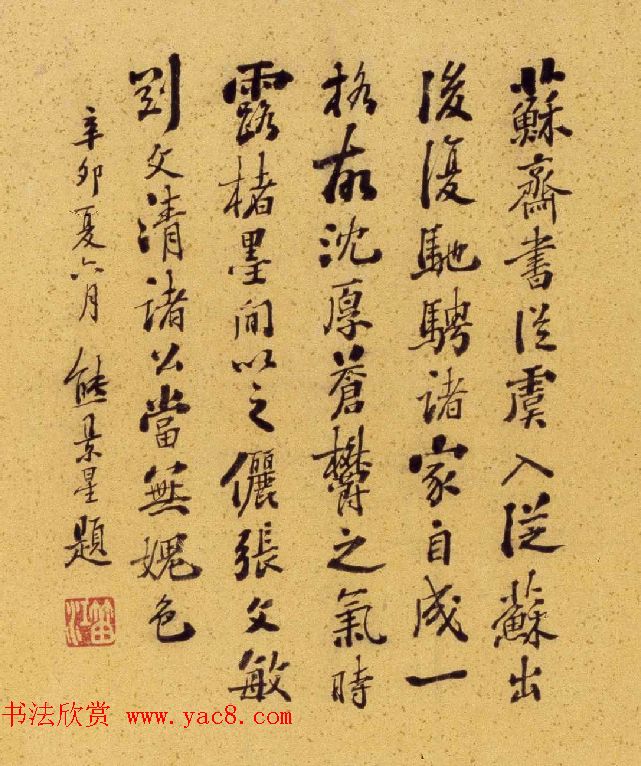 蘇齋書從虞入從蘇出
後復馳騁諸家自成一
格故沈厚蒼鬱之氣時
露楮墨間以之儷張文敏
劉文清諸公當無媿色
辛卯夏六月 熊景星題
笛江
书法欣赏 www.yac8.com